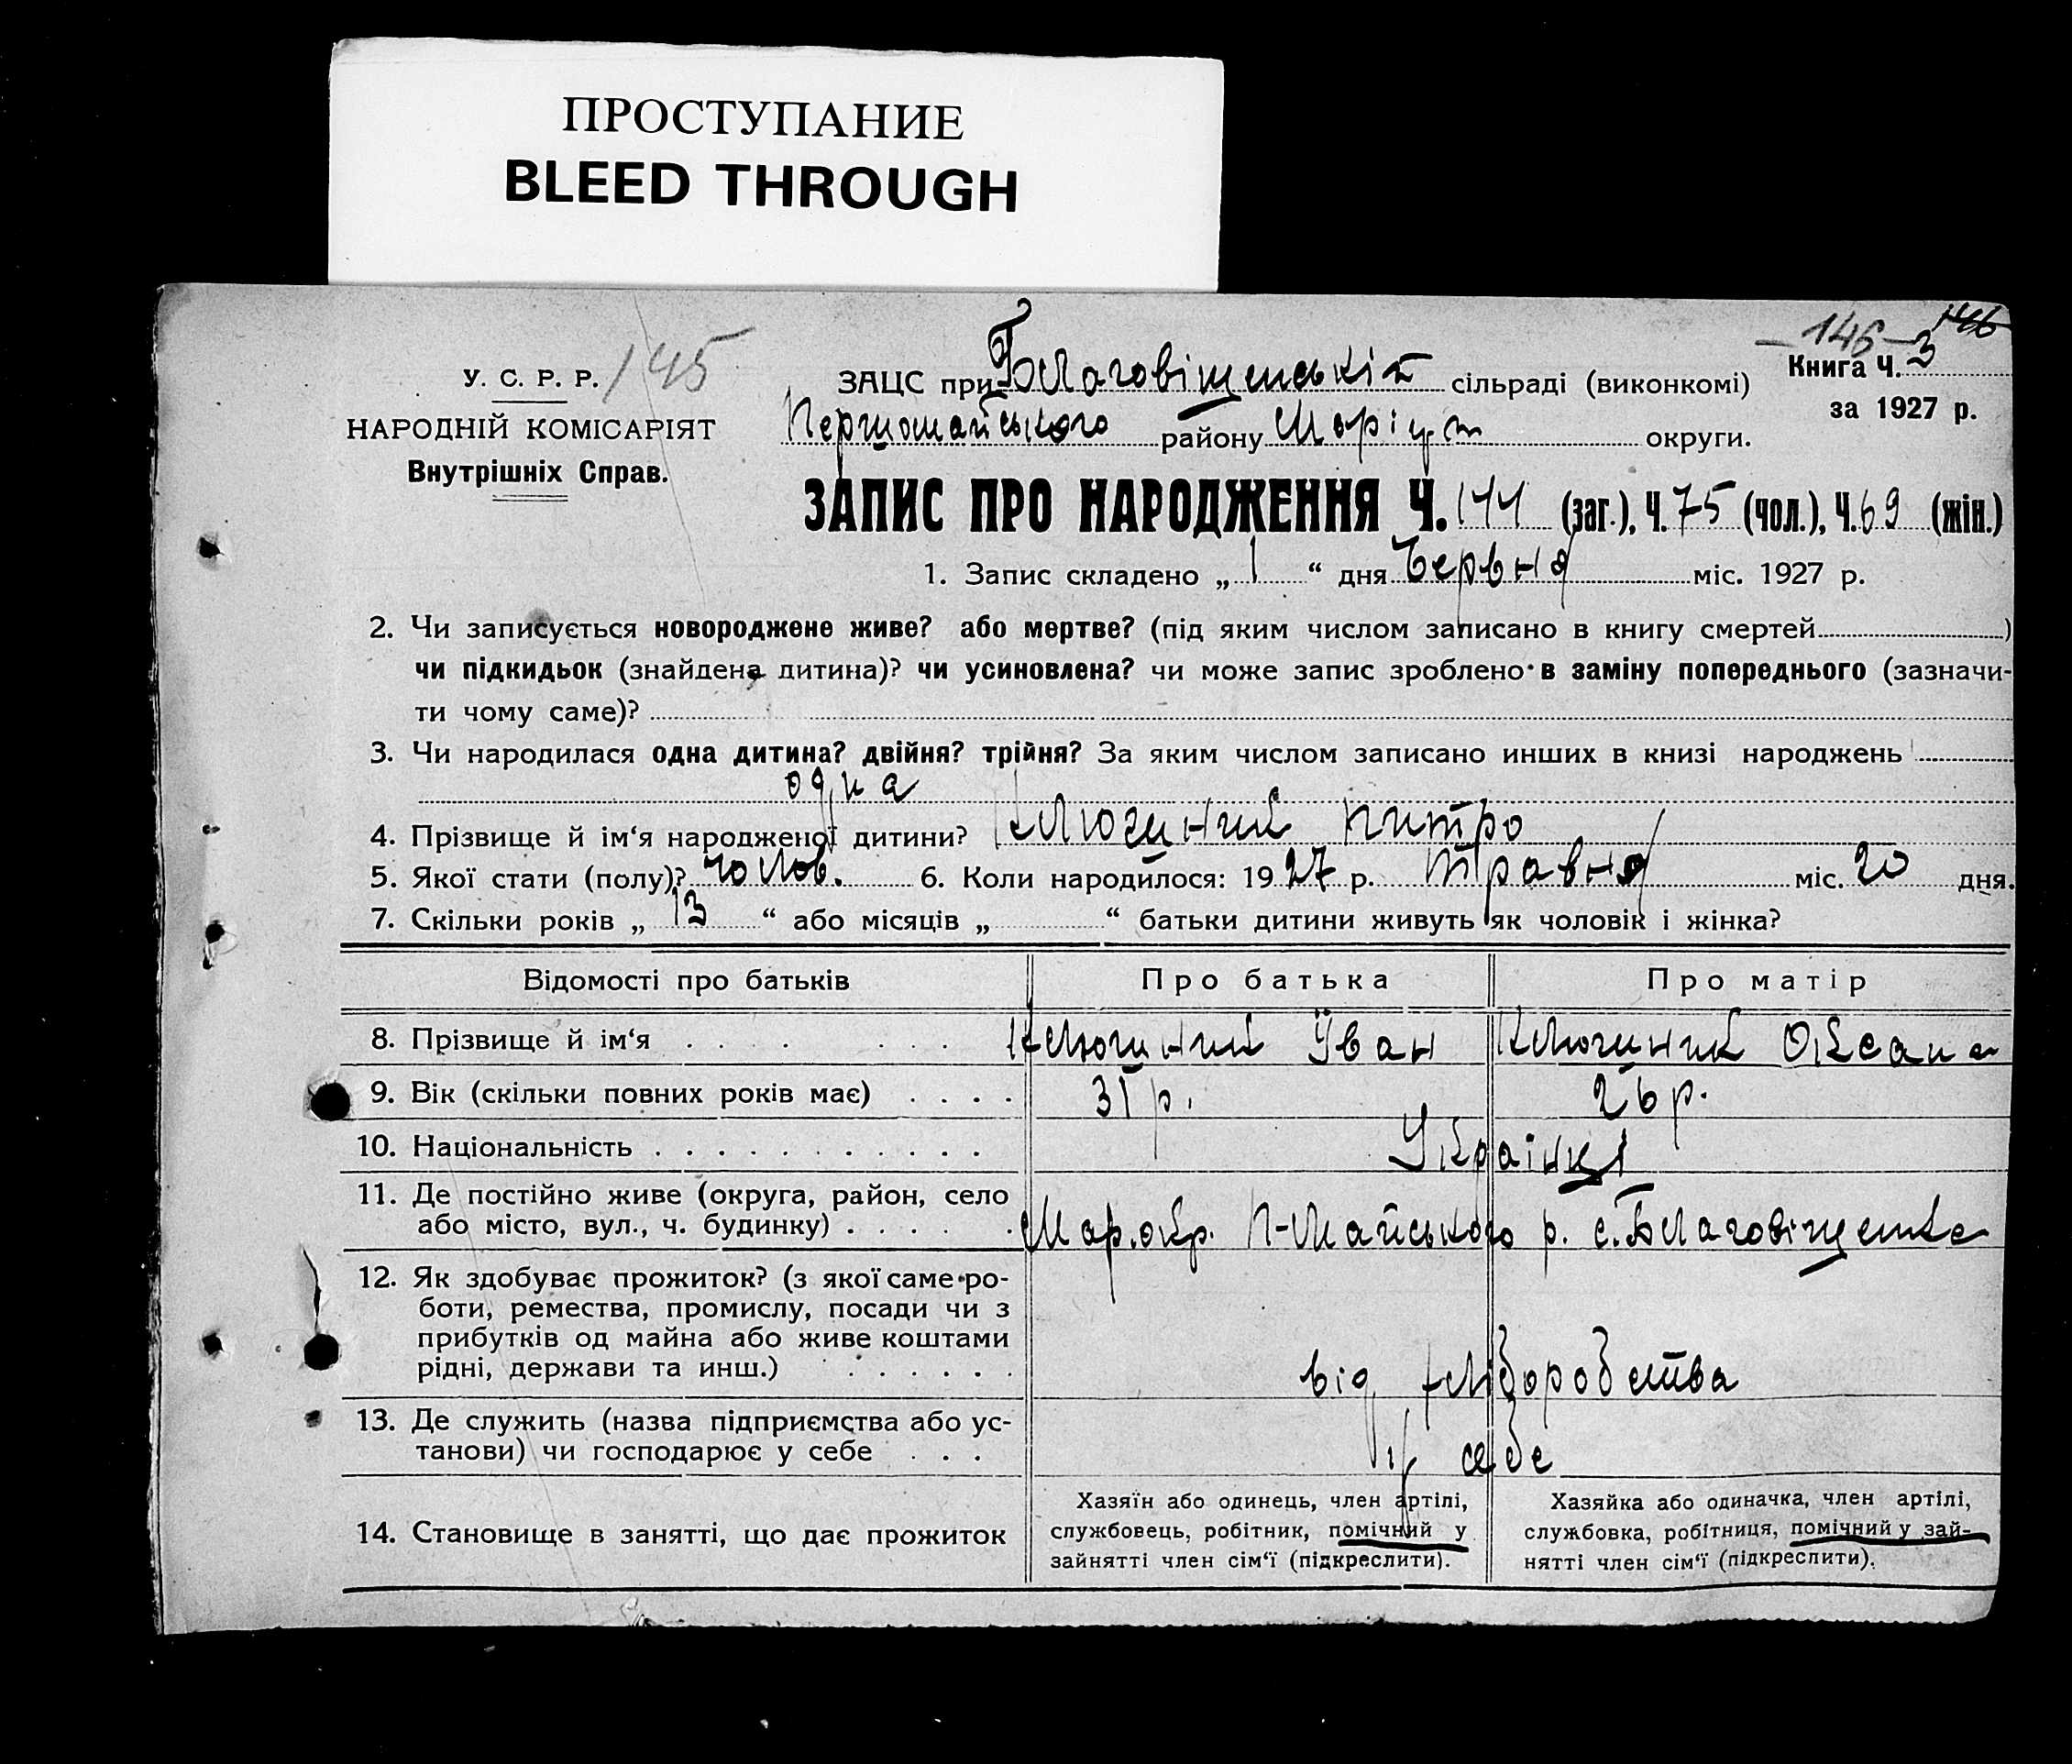 ПРОСТУПАНИЕ
BLEED THROUGH
146
У. С. Р. Р. 145
НАРОДНІЙ КОМІСАРІЯТ
Внутрішніх Справ.
146
Книга Ч. 3
за 1927 р.
ЗАЦС при Благовіщенській сільраді (виконкомі)
Першомайського району Маріуп округи.
ЗАПИС ПРО НАРОДЖЕННЯ Ч. 144 (заг.), Ч. 75 (чол.), Ч. 69 (жін.)
1. Запис складено „ 1 “ дня Червня міс. 1927 р.
2. Чи записується новороджене живе? або мертве? (під яким числом записано в книгу смертей )
чи підкидьок (знайдена дитина)? чи усиновлена? чи може запис зроблено в заміну попереднього (зазначи-
ти чому саме)?
3. Чи народилася одна дитина? двійня? трійня? За яким числом записано инших в книзі народжень
одна
4. Прізвище й ім‘я народженої дитини? Ключиник Питро
5. Якої стати (полу)? чолов. 6. Коли народилося: 1927 р. Травня міс. 20 дня.
7. Скільки років „ 13 “ або місяців „ “ батьки дитини живуть як чоловік і жінка?
Відомості про батьків Про батька Про матір
8. Прізвище й ім‘я Ключиник Іван Ключиник Оксана
9. Вік (скільки повних років має) 31 р. 26 р.
10. Національність Українці
11. Де постійно живе (округа, район, село
або місто, вул., ч. будинку) Мар. окр. П-Майського р. с. Благовіщенка
12. Як здобуває прожиток? (з якої саме ро-
боти, ремества, промислу, посади чи з
прибутків од майна або живе коштами
рідні, держави та инш.) від хліборобства
13. Де служить (назва підприємства або ус-
танови) чи господарює у себе у себе
14. Становище в занятті, що дає прожиток
Хазяїн або одинець, член артілі,
службовець, робітник, помічний у
зайнятті член сім‘ї (підкреслити).
Хазяйка або одиначка, член артілі,
службовка, робітниця, помічний у зай-
нятті член сім‘ї (підкреслити).